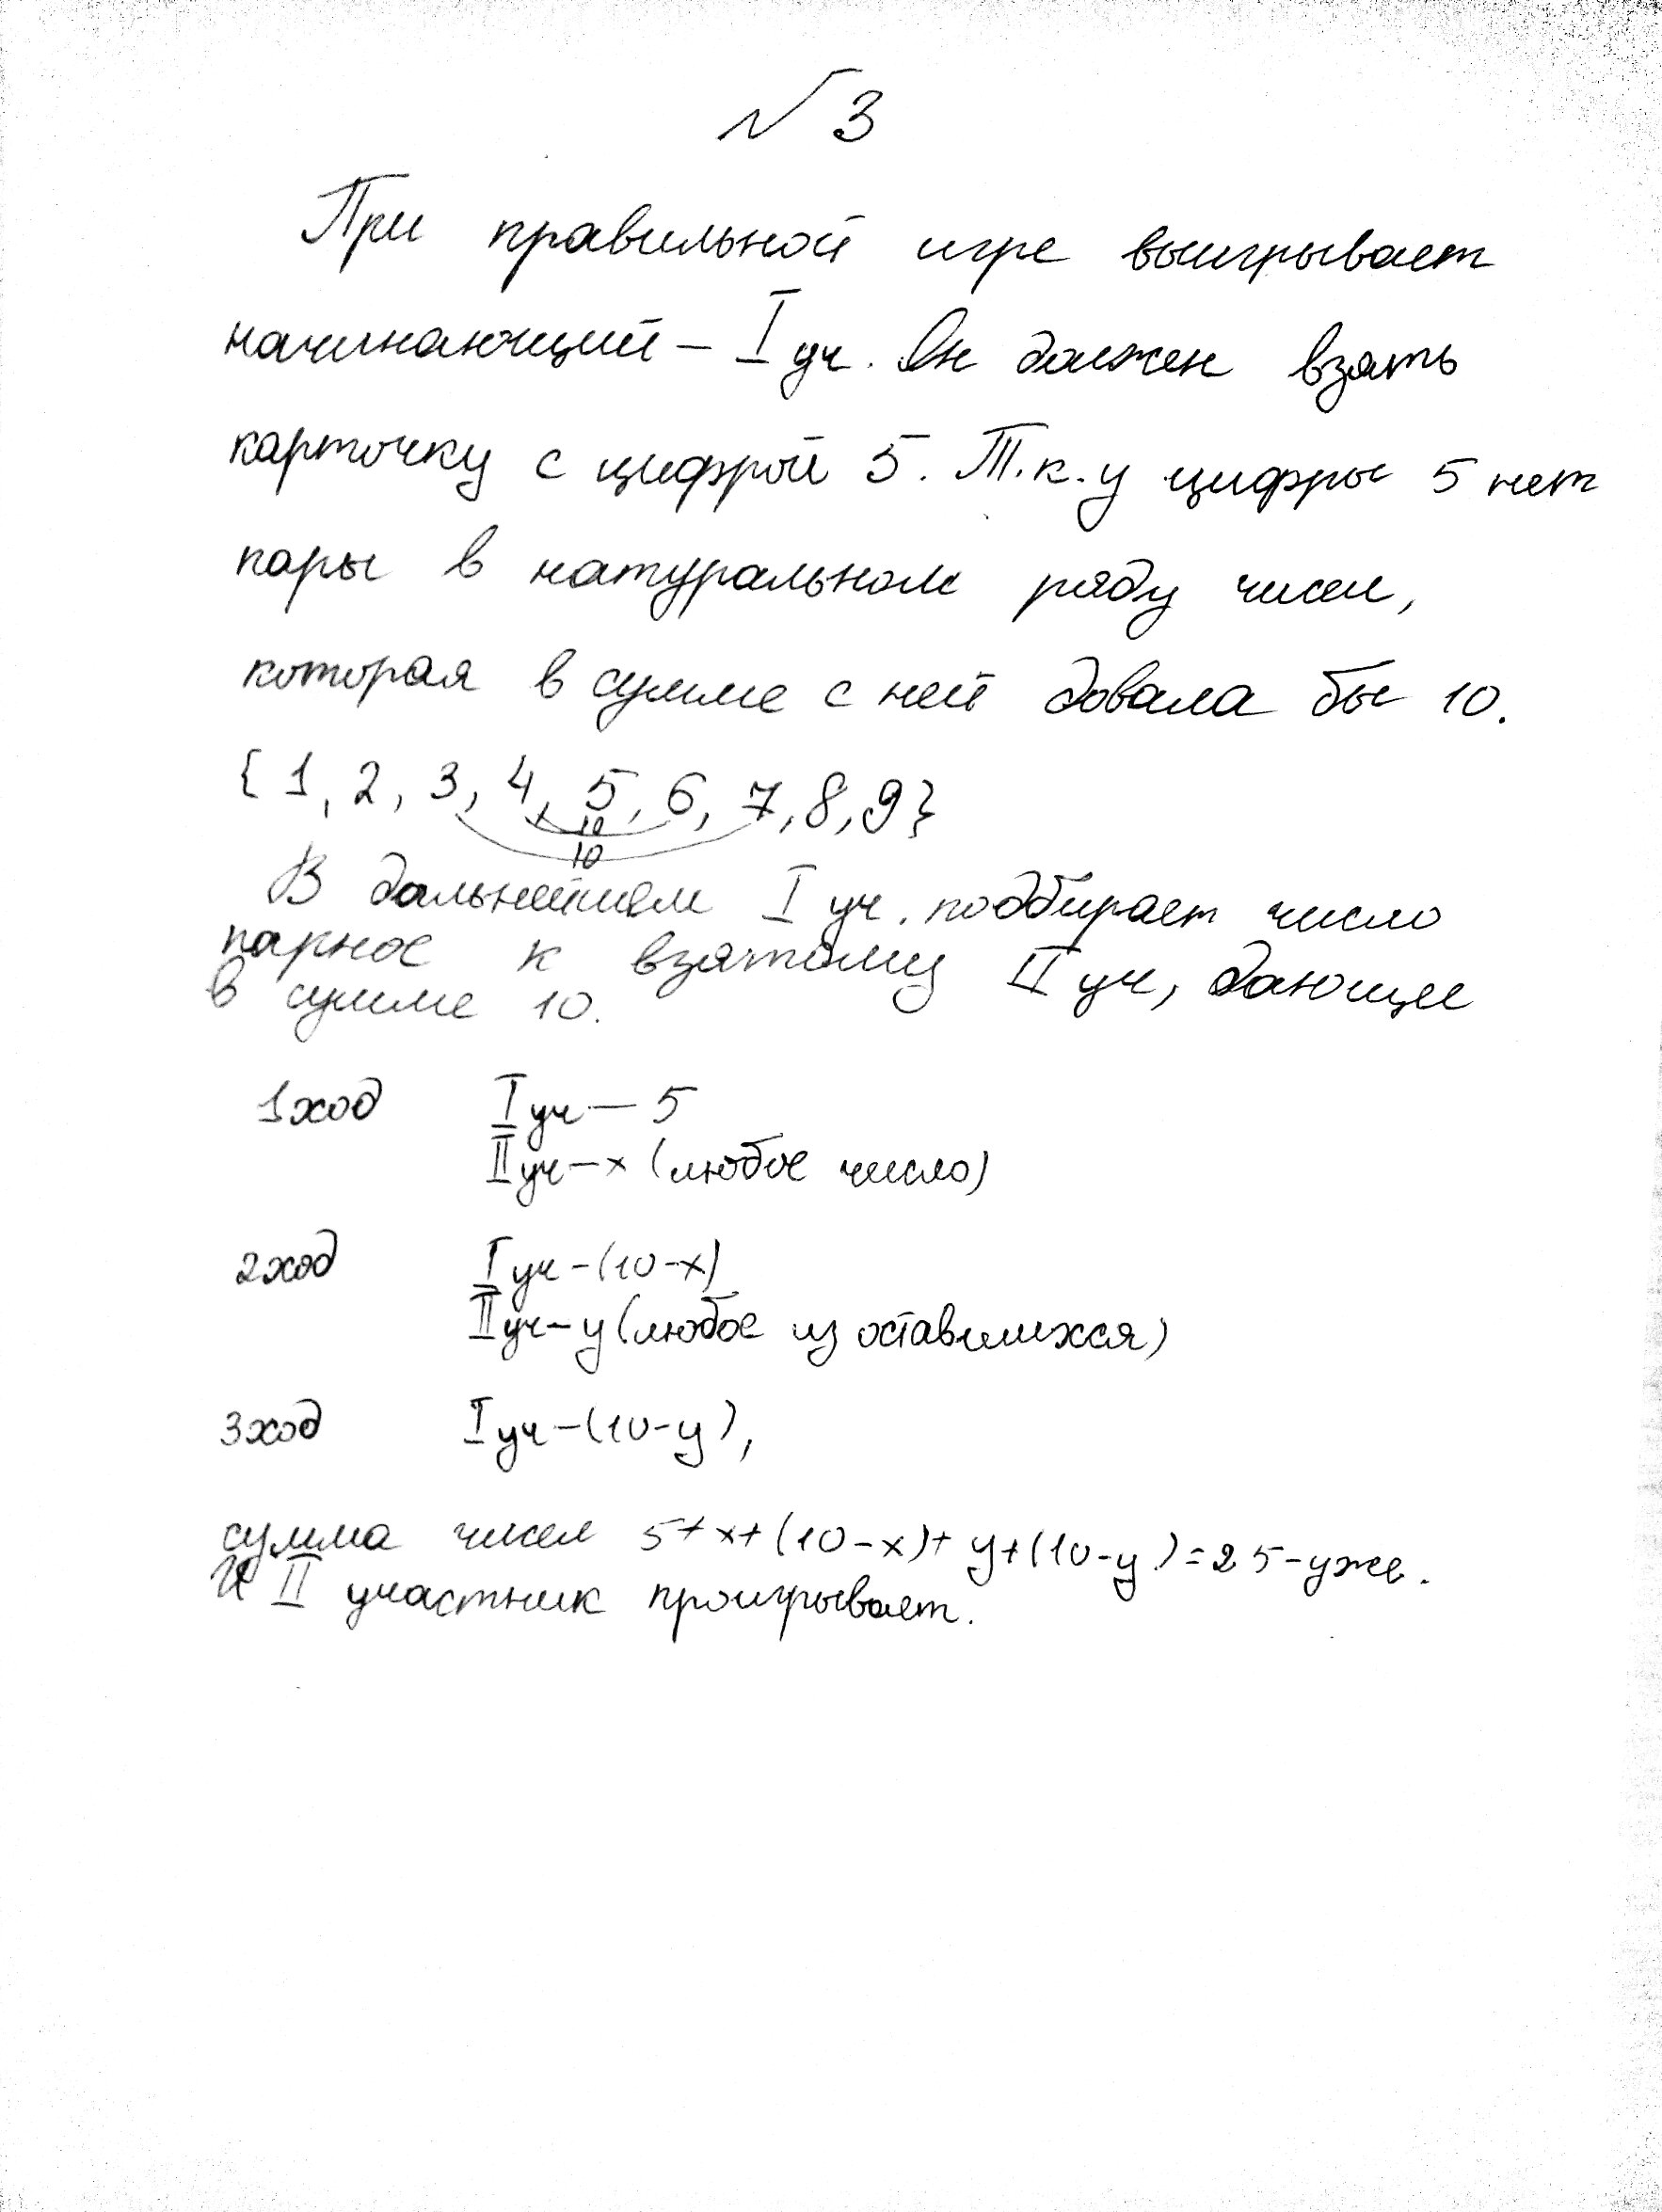 № 3
При правильной игре выигрывает
начинающий – I уч. Он должен взять
карточку с цифрой 5. Т.к. у цифры 5 нет
пары в натуральном ряду чисел,
которая в сумме с ней довала бы 10.
{ 1, 2, 3, 4, 5, 6, 7, 8, 9 }
10
10
В дальнейшем I уч. подбирает число
парное к взятому II уч, дающее
в сумме 10.
1 ход I уч – 5
II уч – x (любое число)
2 ход I уч – (10-x)
II уч – y (любое из оставшихся)
3 ход I уч – (10-y),
сумма чисел 5+x+(10-x)+y+(10-y)=25-уже.
И II участник проигрывает.